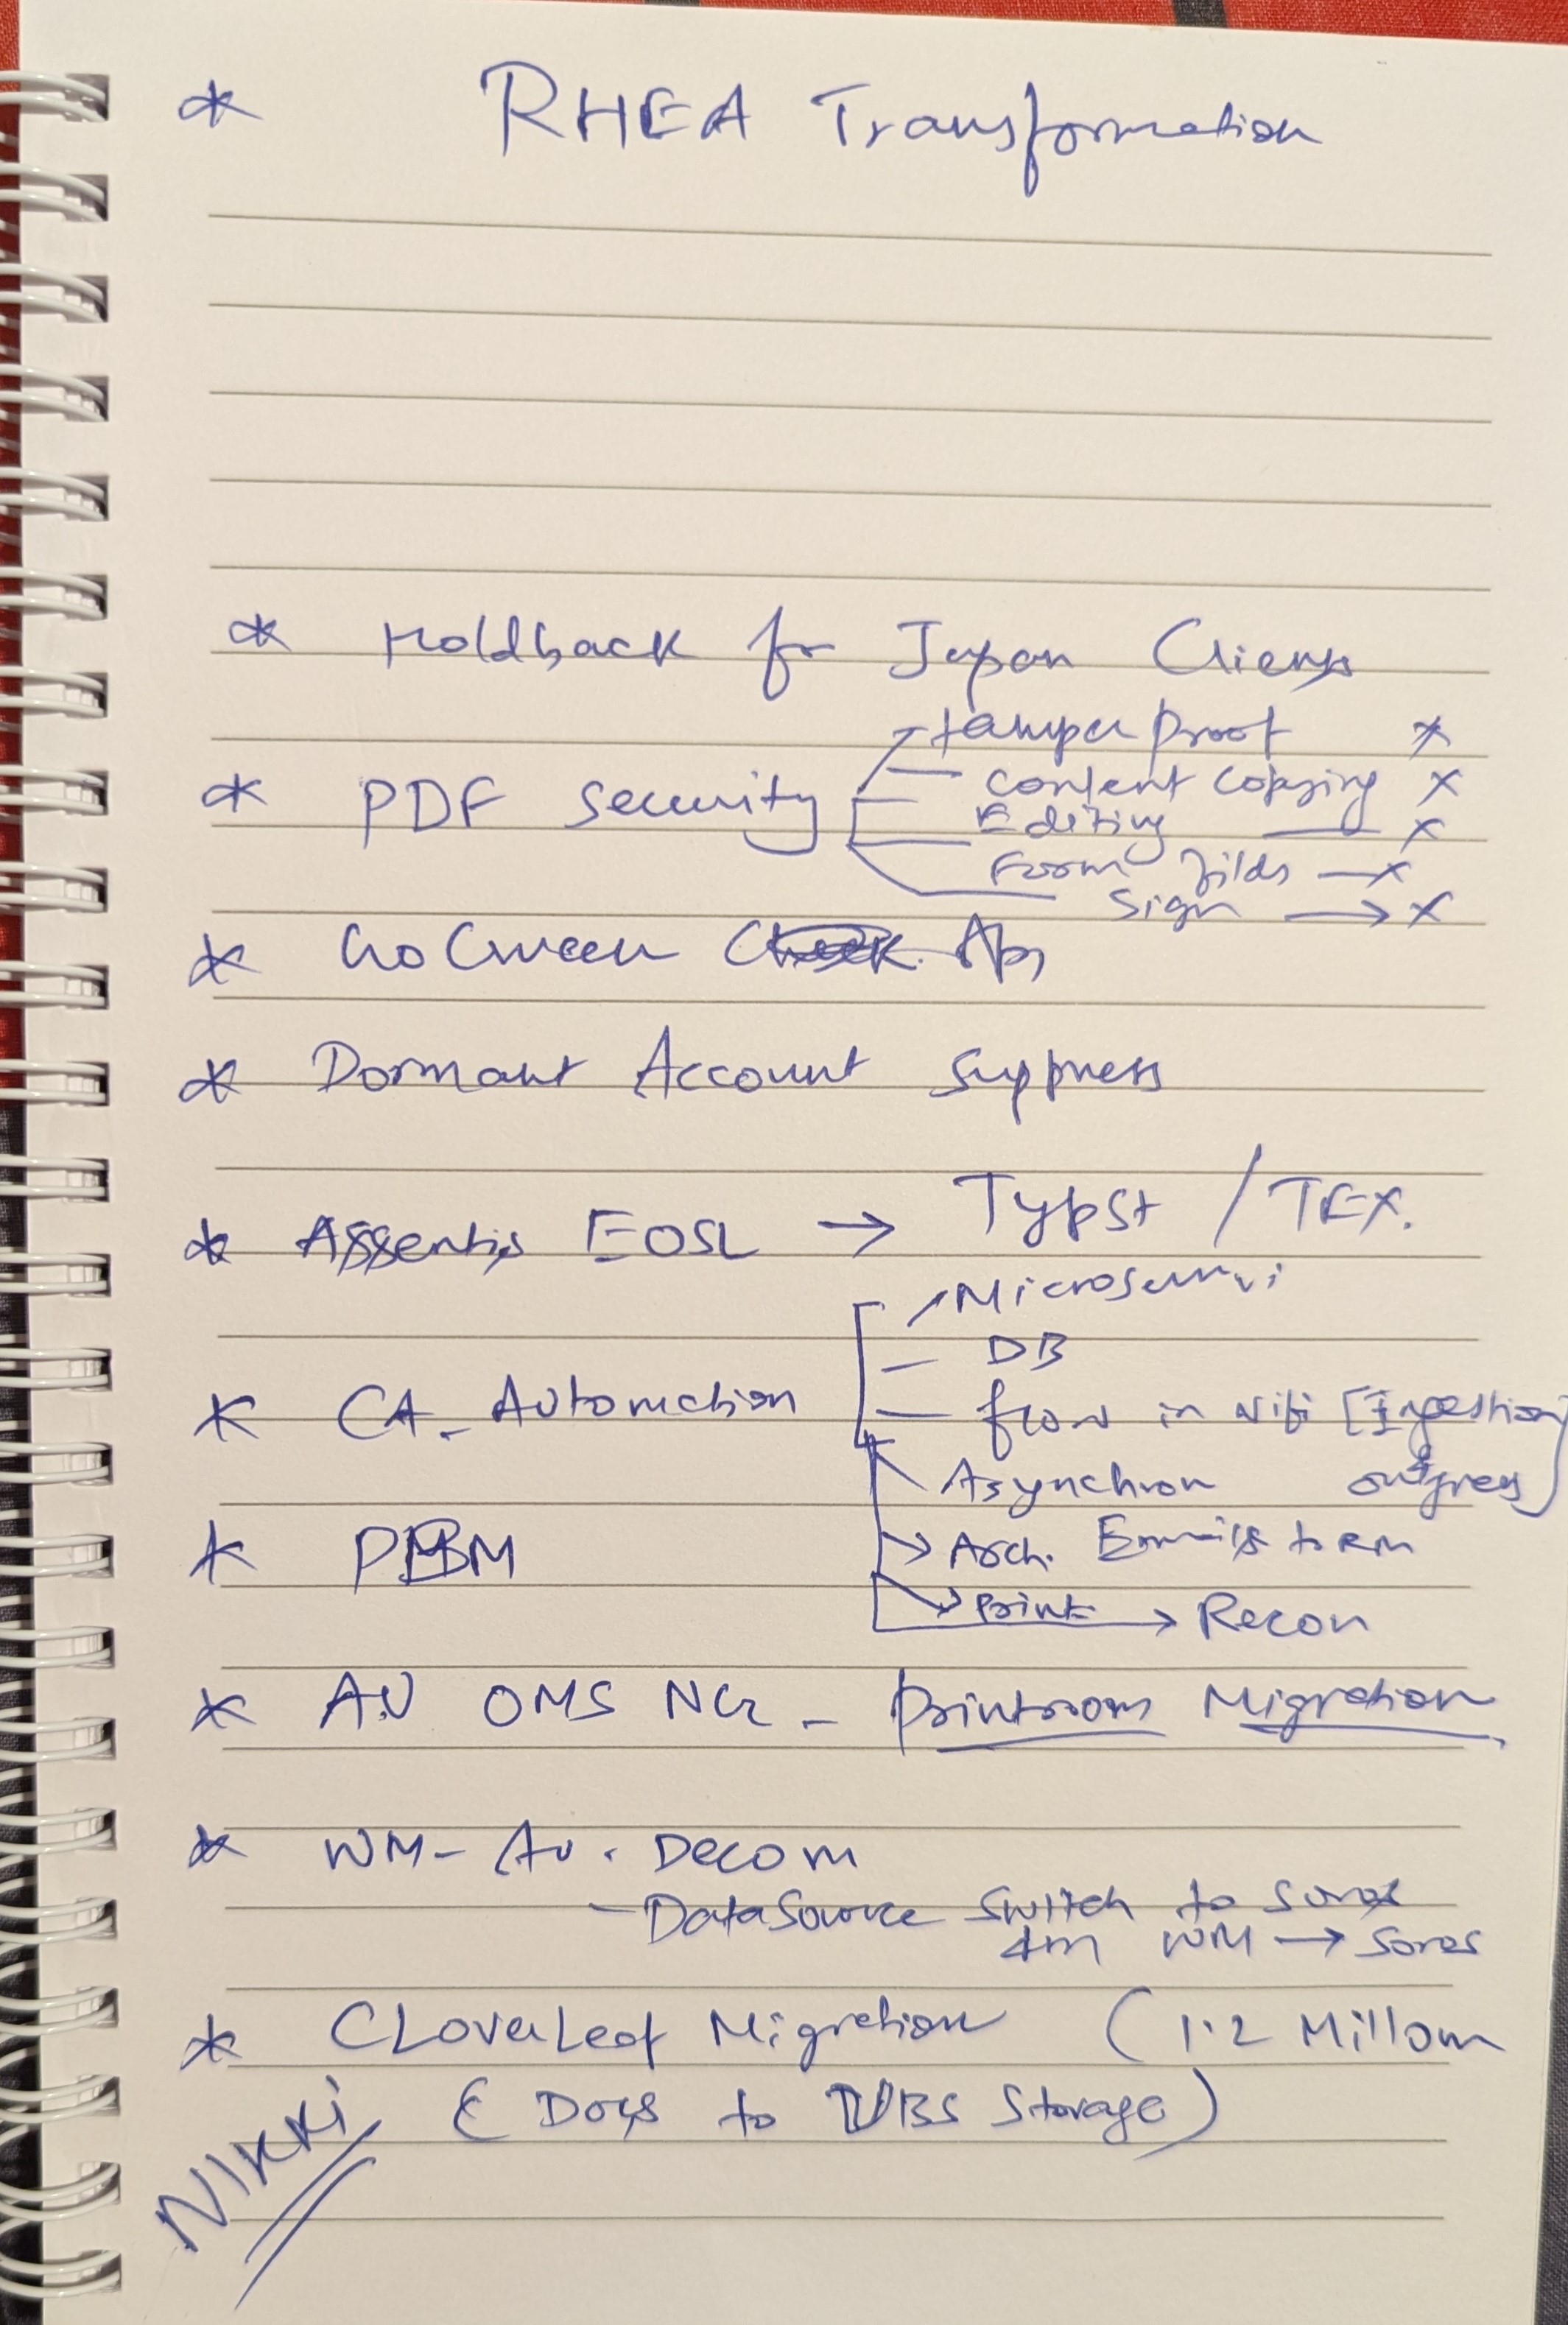 * RHEA Transformation
* Holdback for Japan Clients
* PDF Security
tamper proof x
Content Copying x
Editing — x
Form filds — x
Sign → x
* Go Green
* Dormant Account Suppress
* Assentis EOSL → Typst / TEX.
* CA - Automation
Microservi
DB
flow in Nifi [Ingestion
outgress]
Asynchron
→ Arch. Emails to RM
→ Print → Recon
* PBM
* AU OMS NG - Printroom Migration
* WM - AU . Decom
- DataSource Switch to
WM → Sores
* CLoverLeaf Migration (1.2 Millon
( Docs to UBS Storage)
NIKKI